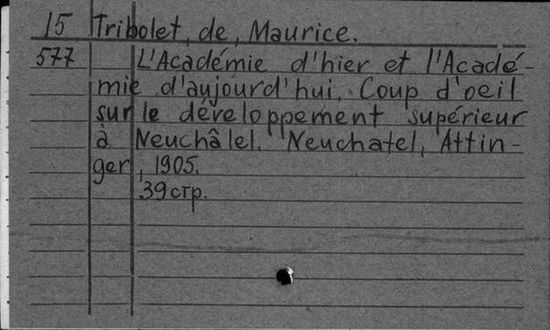 15 Tribolet, de, Maurice.
577 L'Académie d'hier et l'Acadé-
mie d'aujourd'hui. Coup d'oeil
sur le développement supérieur
à Neuchâlel. Neuchatel, Attin-
ger, 1905.
39 стр.